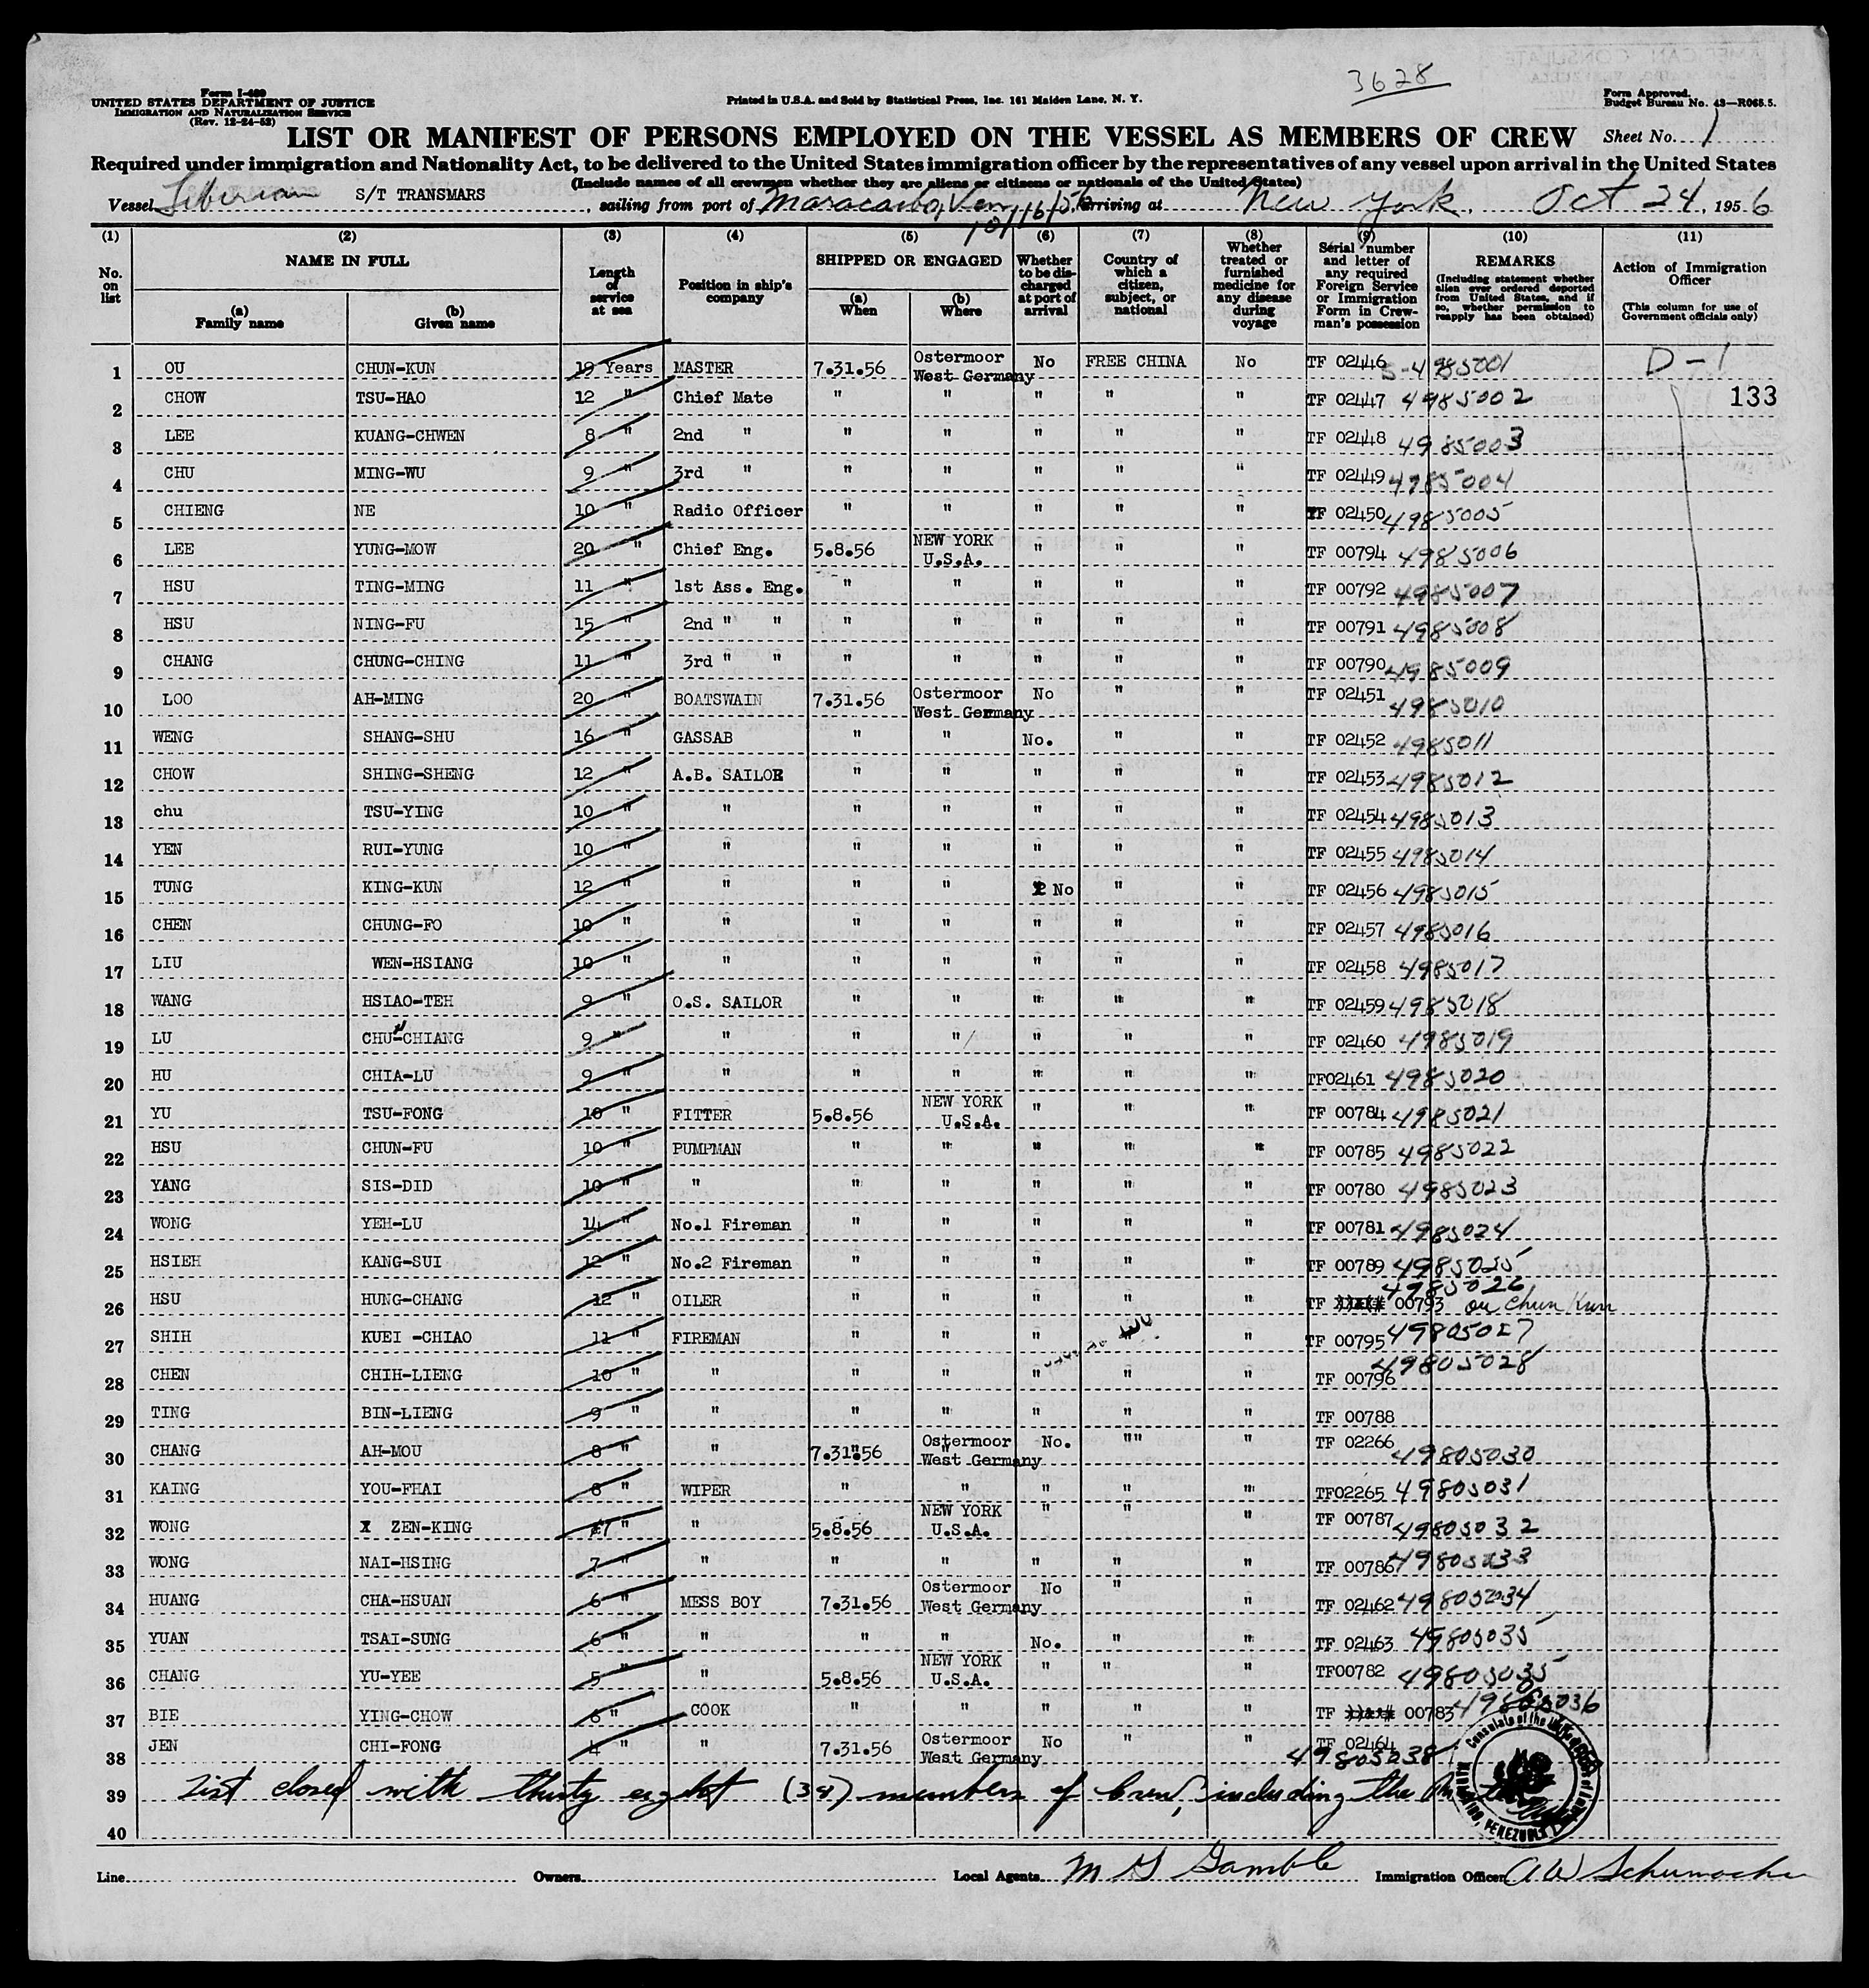 3628
Form I-480
UNITED STATES DEPARTMENT OF JUSTICE
IMMIGRATION AND NATURALIZATION SERVICE
(Rev. 12-24-52)
Printed in U.S.A. and Sold by Statistical Press, Inc. 161 Maiden Lane, N. Y.
Form Approved.
Budget Bureau No. 43—R065.5.
LIST OR MANIFEST OF PERSONS EMPLOYED ON THE VESSEL AS MEMBERS OF CREW
Sheet No. 1
Required under immigration and Nationality Act, to be delivered to the United States immigration officer by the representatives of any vessel upon arrival in the United States
(Include names of all crewmen whether they are aliens or citizens or nationals of the United States)
Vessel Liberian S/T TRANSMARS, sailing from port of Maracaibo, Ven, 10/16/56, arriving at New York, Oct 24, 1956
(1) (2) (3) (4) (5) (6) (7) (8) (9) (10) (11)
No. on list
NAME IN FULL
(a) Family name
(b) Given name
Length of service at sea
Position in ship's company
SHIPPED OR ENGAGED
(a) When
(b) Where
Whether to be discharged at port of arrival
Country of which a citizen, subject, or national
Whether treated or furnished medicine for any disease during voyage
Serial number and letter of any required Foreign Service or Immigration Form in Crewman's possession
REMARKS
(Including statement whether alien ever ordered deported from United States, and if so, whether permission to reapply has been obtained)
Action of Immigration Officer
(This column for use of Government officials only)
1 OU CHUN-KUN 19 Years MASTER 7.31.56 Ostermoor West Germany No FREE CHINA No TF 02446 S-4985001 D-1
2 CHOW TSU-HAO 12 " Chief Mate " " " " " TF 02447 4985002 133
3 LEE KUANG-CHWEN 8 " 2nd " " " " " " TF 02448 4985003
4 CHU MING-WU 9 " 3rd " " " " " " TF 02449 4985004
5 CHIENG NE 10 " Radio Officer " " " " " TF 02450 4985005
6 LEE YUNG-MOW 20 " Chief Eng. 5.8.56 NEW YORK U.S.A. " " " TF 00794 4985006
7 HSU TING-MING 11 " 1st Ass. Eng. " " " " " TF 00792 4985007
8 HSU NING-FU 15 " 2nd " " " " " " " TF 00791 4985008
9 CHANG CHUNG-CHING 11 " 3rd " " " " " " " TF 00790 4985009
10 LOO AH-MING 20 " BOATSWAIN 7.31.56 Ostermoor West Germany No " " TF 02451 4985010
11 WENG SHANG-SHU 16 " GASSAB " " No. " " TF 02452 4985011
12 CHOW SHING-SHENG 12 " A.B. SAILOR " " " " " TF 02453 4985012
13 chu TSU-YING 10 " " " " " " " TF 02454 4985013
14 YEN RUI-YUNG 10 " " " " " " " TF 02455 4985014
15 TUNG KING-KUN 12 " " " " No " " TF 02456 4985015
16 CHEN CHUNG-FO 10 " " " " " " " TF 02457 4985016
17 LIU WEN-HSIANG 10 " " " " " " " TF 02458 4985017
18 WANG HSIAO-TEH 9 " O.S. SAILOR " " " " " TF 02459 4985018
19 LU CHU-CHIANG 9 " " " " " " " TF 02460 4985019
20 HU CHIA-LU 9 " " " " " " " TF02461 4985020
21 YU TSU-FONG 10 " FITTER 5.8.56 NEW YORK U.S.A. " " " TF 00784 4985021
22 HSU CHUN-FU 10 " PUMPMAN " " " " " TF 00785 4985022
23 YANG SIS-DID 10 " " " " " " " TF 00780 4985023
24 WONG YEH-LU 14 " No.1 Fireman " " " " " TF 00781 4985024
25 HSIEH KANG-SUI 12 " No.2 Fireman " " " " " TF 00789 4985025
26 HSU HUNG-CHANG 12 " OILER " " " " " TF 00793 4985026 ou Chun Kun
27 SHIH KUEI -CHIAO 11 " FIREMAN " " " " " TF 00795 49805027
28 CHEN CHIH-LIENG 10 " " " " " " " TF 00796 49805028
29 TING BIN-LIENG 9 " " " " " " " TF 00788
30 CHANG AH-MOU 8 " " 7.31.56 Ostermoor West Germany No. "" " TF 02266 49805030
31 KAING YOU-FHAI 8 " WIPER " " " " " TF02265 49805031
32 WONG ZEN-KING 7 " " 5.8.56 NEW YORK U.S.A. " " " TF 00787 49805032
33 WONG NAI-HSING 7 " " " " " " " TF 00786 49805033
34 HUANG CHA-HSUAN 6 " MESS BOY 7.31.56 Ostermoor West Germany No " " TF 02462 49805034
35 YUAN TSAI-SUNG 6 " " " " No. " " TF 02463 49805035
36 CHANG YU-YEE 5 " " 5.8.56 NEW YORK U.S.A. " " " TF00782 49805035
37 BIE YING-CHOW 6 " COOK " " " " " TF 00783 49805036
38 JEN CHI-FONG 4 " " 7.31.56 Ostermoor West Germany No " " TF 02464 49805038
39 List closed with thirty eight (38) members of Crew, including the
40
Line Owners Local Agents M G Gamble Immigration Officer A W Schumacher